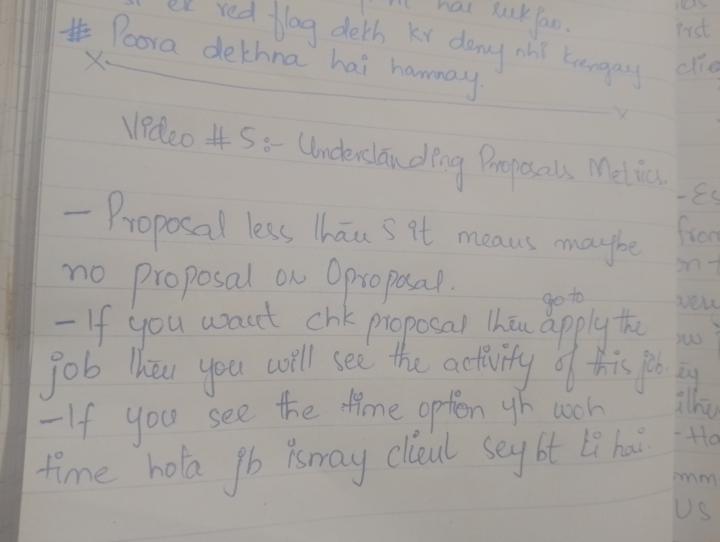 ek red flag dekh kr deny nhi krengay
# Poora dekhna hai hamnay.
Video # 5:- Understanding Proposals Metrics.
- Proposal less than 5 it means maybe
no proposal or 0proposal.
- If you want chk proposal then go to apply the
job then you will see the activity of this job.
- If you see the time option yh woh
time hota jb ismay client sey bt ki hai.
irst
clie
- Es
from
on t
veri
ow
ey
- Ho
mm
US